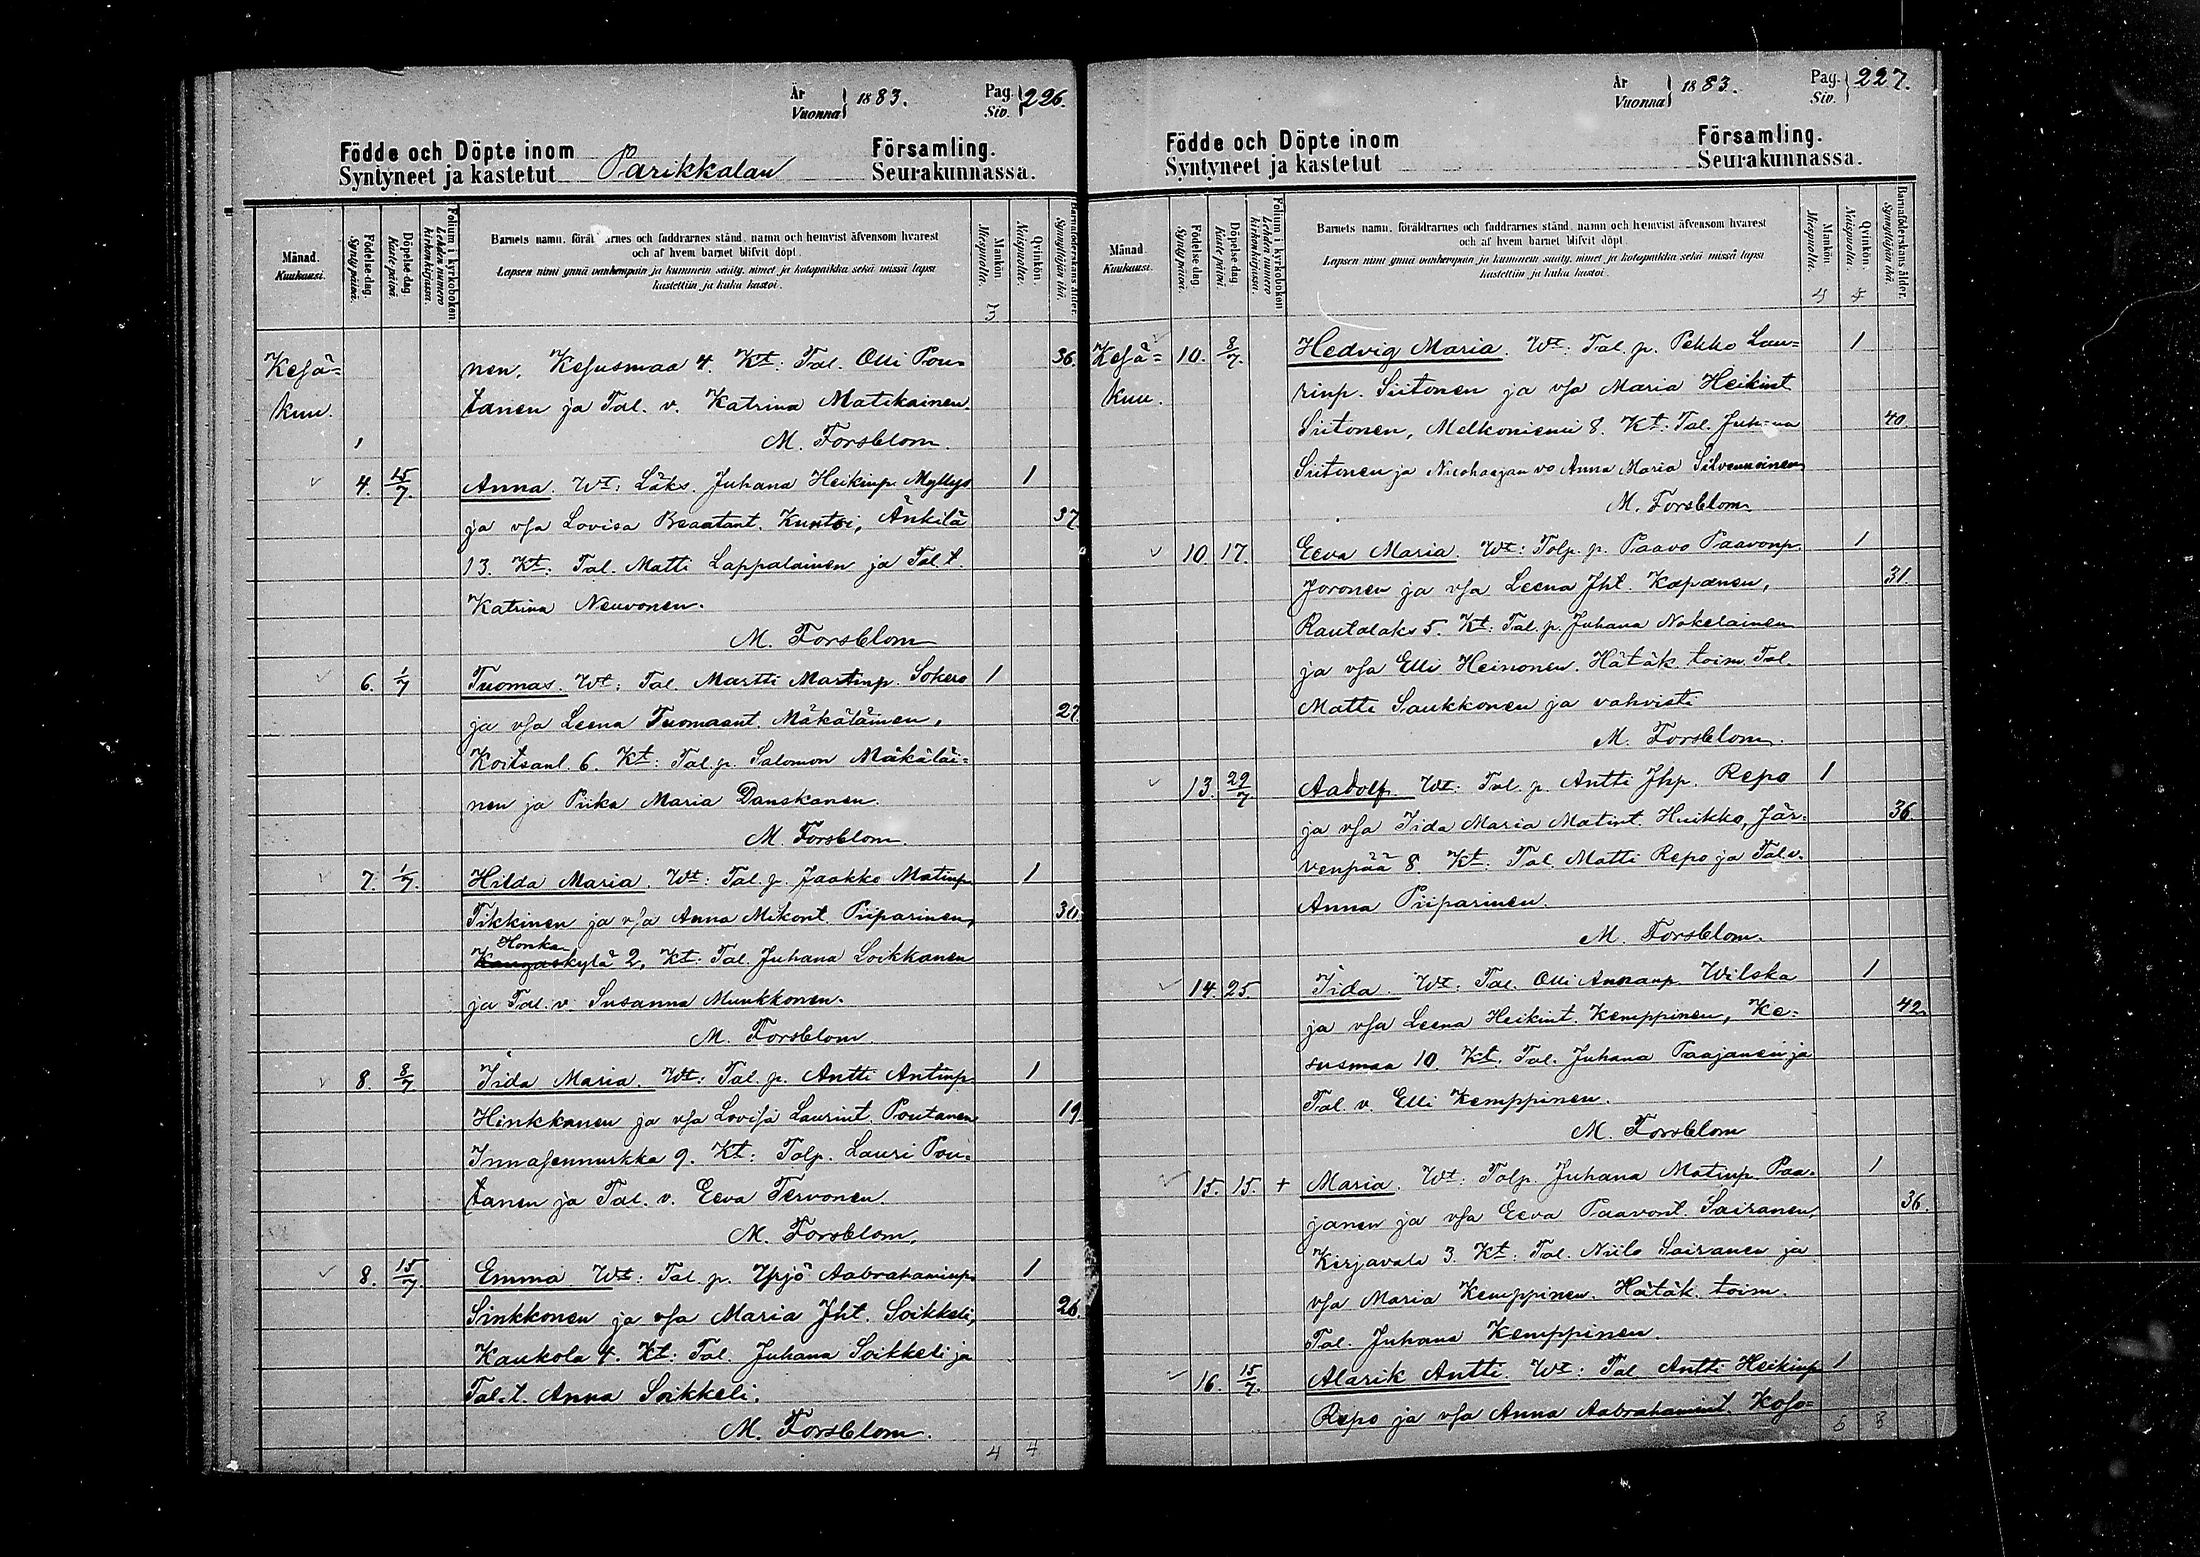 År Vuonna 1883. Pag. Siv. 226.
Födde och Döpte inom Församling.
Syntyneet ja kastetut Parikkalan Seurakunnassa.
Månad. Kuukausi.
Födelse-dag. Syntypäivä.
Döpelse-dag Kastepäivä.
Folium i kyrkoboken Lehden numero kirkonkirjassa.
Barnets namn, föräldrarnes och faddrarnes stånd, namn och hemvist äfvensom hvarest
och af hvem barnet blifvit döpt.
Lapsen nimi ynnä vanhempain ja kummein sääty, nimet ja kotopaikka sekä missä lapsi
kastettiin ja kuka kastoi.
Mankön Miespuolta.
Qvinkön. Naispuolta.
Barnaföderskans ålder. Synnyttäjän ikä.
3
Kesä= nen, Kesusmaa 4. Kt: Tal. Olli Pou= 36.
kuu. tanen ja Tal. v. Katrina Matikainen.
M. Forsblom.
4. 15/7. Anna. Wt: Läks. Juhana Heikinp. Myllys 1
ja vsa Lovisa Beaatant. Kuntsi, Änkilä 37
13. Kt: Tal. Matti Lappalainen ja Tal. t.
Katrina Neuvonen.
M. Forsblom
6. 1/7 Tuomas. Wt: Tal. Martti Martinp. Sokero 1
ja vsa Leena Tuomaant. Mäkäläinen, 27.
Koitsanl. 6. Kt: Tal. p. Salomon Mäkäläi=
nen ja Piika Maria Danskanen.
M. Forsblom.
7. 1/7. Hilda Maria. Wt: Tal. p. Jaakko Matinp. 1
Tikkinen ja vsa Anna Mikont. Piiparinen, 30.
Honka
Kangaskylä 2. Kt: Tal. Juhana Loikkanen
ja Tal. v. Susanna Munkkonen.
M. Forsblom.
8. 8/7 Iida Maria. Wt: Tal. p. Antti Antinp. 1
Hinkkanen ja vsa Lovisa Laurint. Poutanen 19.
Innasennurkka 9. Kt: Talp. Lauri Pou=
tanen ja Tal. v. Eeva Tervonen.
M. Forsblom.
8. 15/7. Emma Wt: Tal. p. Yrjö Aabrahaminp. 1
Sinkkonen ja vsa Maria Jht. Soikkeli, 26.
Kaukola 4. Kt: Tal. Juhana Soikkeli ja
Tal. t. Anna Soikkeli.
M. Forsblom.
4 4
År Vuonna 1883. Pag. Siv. 227.
Födde och Döpte inom Församling.
Syntyneet ja kastetut Seurakunnassa.
Månad. Kuukausi.
Födelse-dag. Syntypäivä.
Döpelse-dag Kastepäivä.
Folium i kyrkoboken Lehden numero kirkonkirjassa.
Barnets namn, föräldrarnes och faddrarnes stånd, namn och hemvist äfvensom hvarest
och af hvem barnet blifvit döpt.
Lapsen nimi ynnä vanhempain ja kummein sääty, nimet ja kotopaikka sekä missä lapsi
kastettiin ja kuka kastoi.
Mankön Miespuolta.
Qvinkön. Naispuolta.
Barnaföderskans ålder. Synnyttäjän ikä.
4 4
Kesä= 10. 8/7. Hedvig Maria. Wt: Tal. p. Pekko Lau= 1
kuu. rinp. Siitonen ja vsa Maria Heikint
Siitonen, Melkoniemi 8. Kt: Tal. Juhana 40.
Siitonen ja vo Anna Maria Silvennoinen
M. Forsblom.
10. 17. Eeva Maria. Wt: Talp. p. Paavo Paavonp. 1
Joronen ja vsa Leena Jht. Kapanen, 31.
Rautalaks 5. Kt: Tal. p. Juhana Nokelainen
ja vsa Elli Heinonen. Hätäk. toim. Tal.
Matti Saukkonen ja vahvisti
M. Forsblom.
13. 29/7 Aadolf. Wt: Tal. p. Antti Jhp. Repo 1
ja vsa Iida Maria Matint. Huikko, Jär= 36
venpää 8. Kt: Tal. Matti Repo ja Tal. v.
Anna Piiparinen.
M. Forsblom.
14. 25. Iida. Wt: Tal. Olli Wilska 1
ja vsa Leena Heikint. Kemppinen, Ke= 42.
susmaa 10 Kt. Tal. Juhana Paajanen ja
Tal. v. Elli Kemppinen.
M. Forsblom
15. 15. + Maria. Wt: Talp. Juhana Matinp. Paa= 1
janen ja vsa Eeva Paavont. Sairanen, 36.
Kirjavala 3. Kt: Tal. Niilo Sairanen ja
vsa Maria Kemppinen. Hätäk. toim.
Tal. Juhana Kemppinen.
16. 15/7. Alarik Antti. Wt: Tal. Antti Heikinp. 1
Repo ja vsa Anna Aabrahamint. Koso=